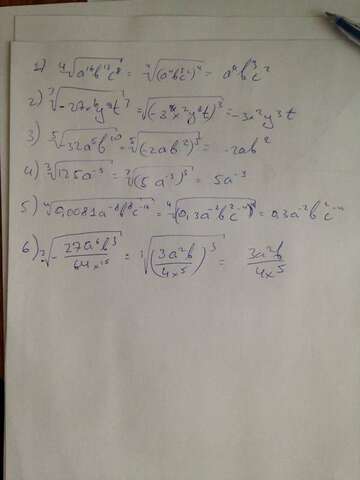 1) ⁴√(a¹⁶b¹²c⁸) = ⁴√(a⁴b³c²)⁴ = a⁴b³c²
2) ³√(-27x⁶y⁹t³) = ³√(-3x²y³t)³ = -3x²y³t
3) ⁵√(-32a⁵b¹⁰) = ⁵√(-2ab²)⁵ = -2ab²
4) ³√(125a⁻³) = ³√(5a⁻³)³ = 5a⁻³
5) ⁴√(0,0081a⁻⁸b⁸c⁻¹⁶) = ⁴√(0,3a⁻²b²c⁻⁴)⁴ = 0,3a⁻²b²c⁻⁴
6) ³√(-27a⁶b³/64x¹⁵) = ³√(3a²b/4x⁵)³ = 3a²b/4x⁵